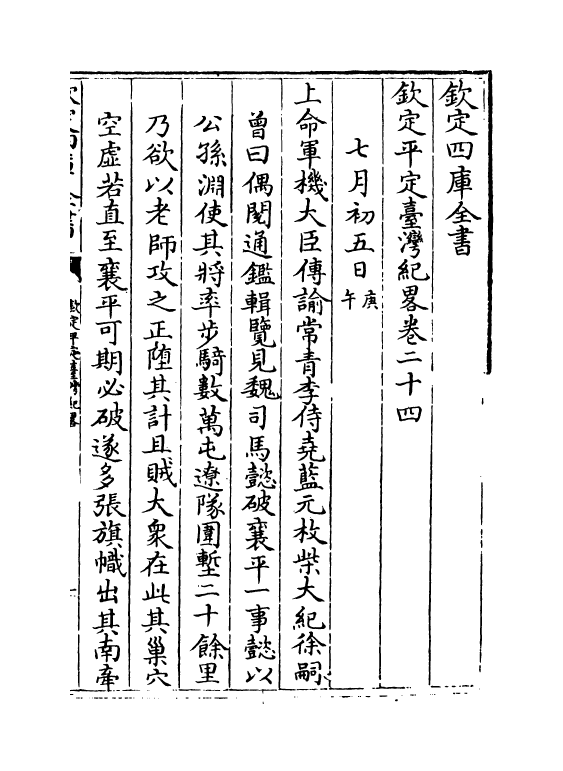 欽定四庫全書
欽定平定臺灣紀畧卷二十四
七月初五日庚午
上命軍機大臣傳諭常青李侍堯藍元枚柴大紀徐嗣
曾曰偶閱通鑑輯覽見魏司馬懿破襄平一事懿以
公孫淵使其將率步騎數萬屯遼隊圍塹二十餘里
乃欲以老師攻之正墮其計且賊大衆在此其巢穴
空虛若直至襄平可期必破遂多張旗幟出其南牽
欽定四庫全書
欽定平定臺灣紀畧
一